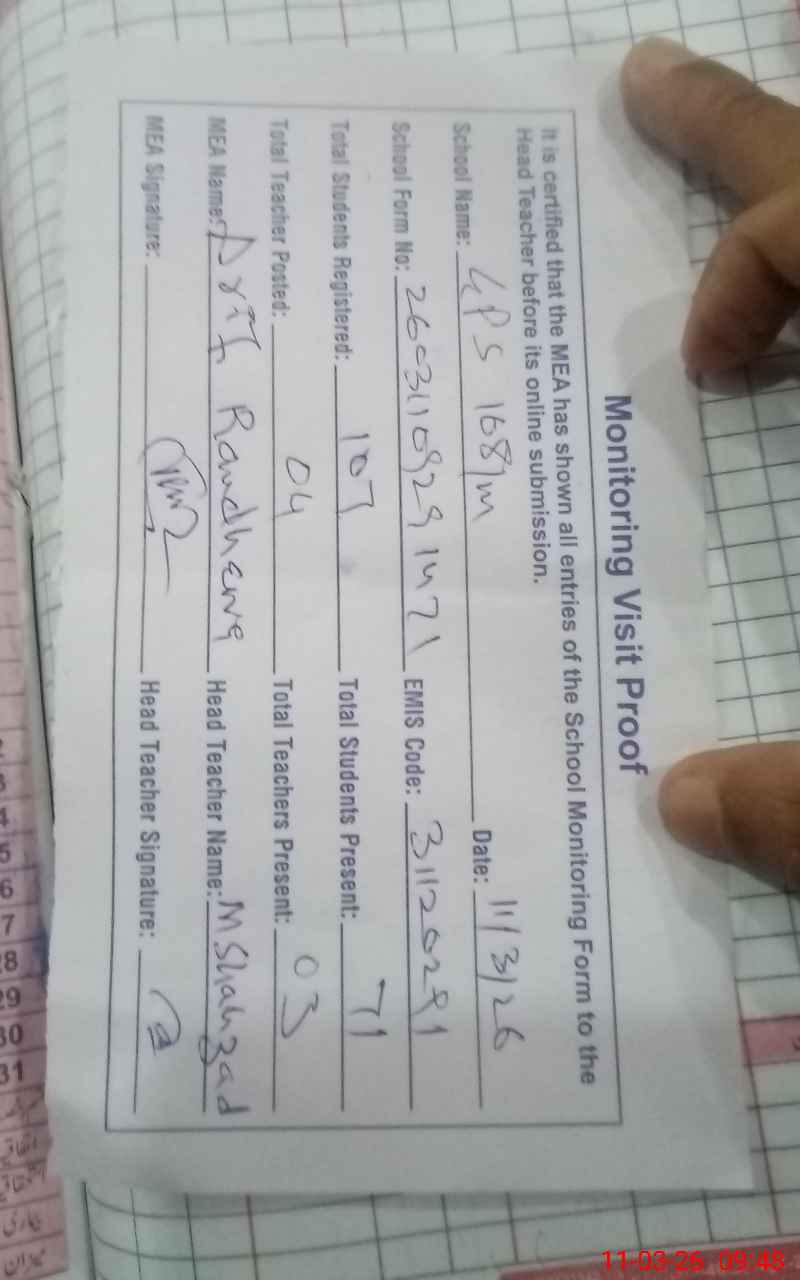 Monitoring Visit Proof
It is certified that the MEA has shown all entries of the School Monitoring Form to the
Head Teacher before its online submission.
School Name: GPS 168/m Date: 11/3/26
School Form No: EMIS Code: 31120291
Total Students Registered: 107 Total Students Present: 71
Total Teacher Posted: 04 Total Teachers Present: 03
MEA Name: Arif Randhawa Head Teacher Name: M Shahzad
MEA Signature: Head Teacher Signature:
11-03-26 09:48